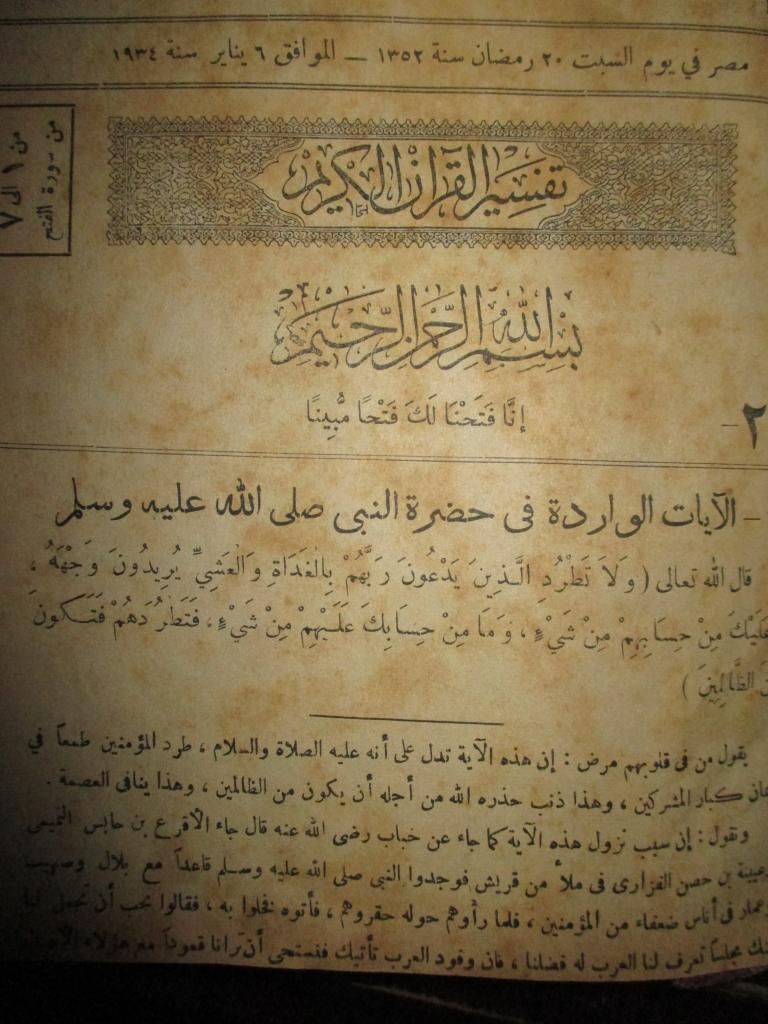 مصر في يوم السبت ٢٠ رمضان سنة ١٣٥٢ — الموافق ٦ يناير سنة ١٩٣٤
من سورة الفتح
من ١ الى ٧
تفسير القرآن الكريم
بسم الله الرحمن الرحيم
إِنَّا فَتَحْنَا لَكَ فَتْحًا مُّبِينًا
٢ –
– الآيات الواردة فى حضرة النبى صلى الله عليه وسلم
قال الله تعالى (وَلَا تَطْرُدِ الَّذِينَ يَدْعُونَ رَبَّهُمْ بِالْغَدَاةِ وَالْعَشِيِّ يُرِيدُونَ وَجْهَهُ ،
عَلَيْكَ مِنْ حِسَابِهِمْ مِنْ شَيْءٍ ، وَمَا مِنْ حِسَابِكَ عَلَيْهِمْ مِنْ شَيْءٍ ، فَتَطْرُدَهُمْ فَتَكُونَ
الظَّالِمِينَ )
يقول من فى قلوبهم مرض : إن هذه الآية تدل على أنه عليه الصلاة والسلام ، طرد المؤمنين طمعاً في
كبار المشركين ، وهذا ذنب حذره الله من أجله أن يكون من الظالمين ، وهذا ينافى العصمة .
ونقول : إن سبب نزول هذه الآية كما جاء عن خباب رضى الله عنه قال جاء الأقرع بن حابس التميمى
وعيينة بن حصن الفزارى فى ملأ من قريش فوجدوا النبى صلى الله عليه وسلم قاعداً مع بلال وصهيب
وعمار فى أناس ضعفاء من المؤمنين ، فلما رأوهم حوله حقروهم ، فأتوه فخلوا به ، فقالوا نحب أن تجعل لنا
منك مجلساً تعرف لنا العرب له فضلنا ، فان وفود العرب تأتيك فنستحى أن ترانا قعوداً مع هؤلاء